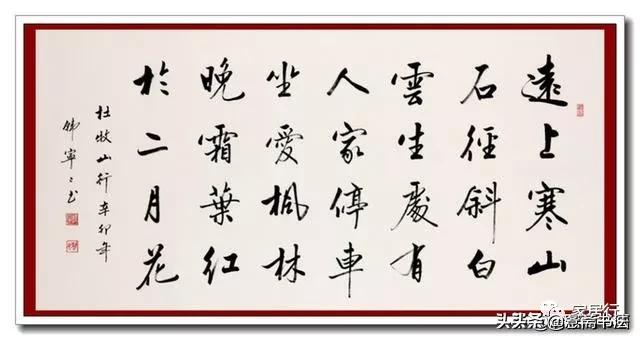 遠上寒山
石徑斜白
雲生處有
人家停車
坐愛楓林
晚霜葉紅
於二月花
杜牧山行辛卯年
韩寧〻书
家居行
头条 @ 斋书法